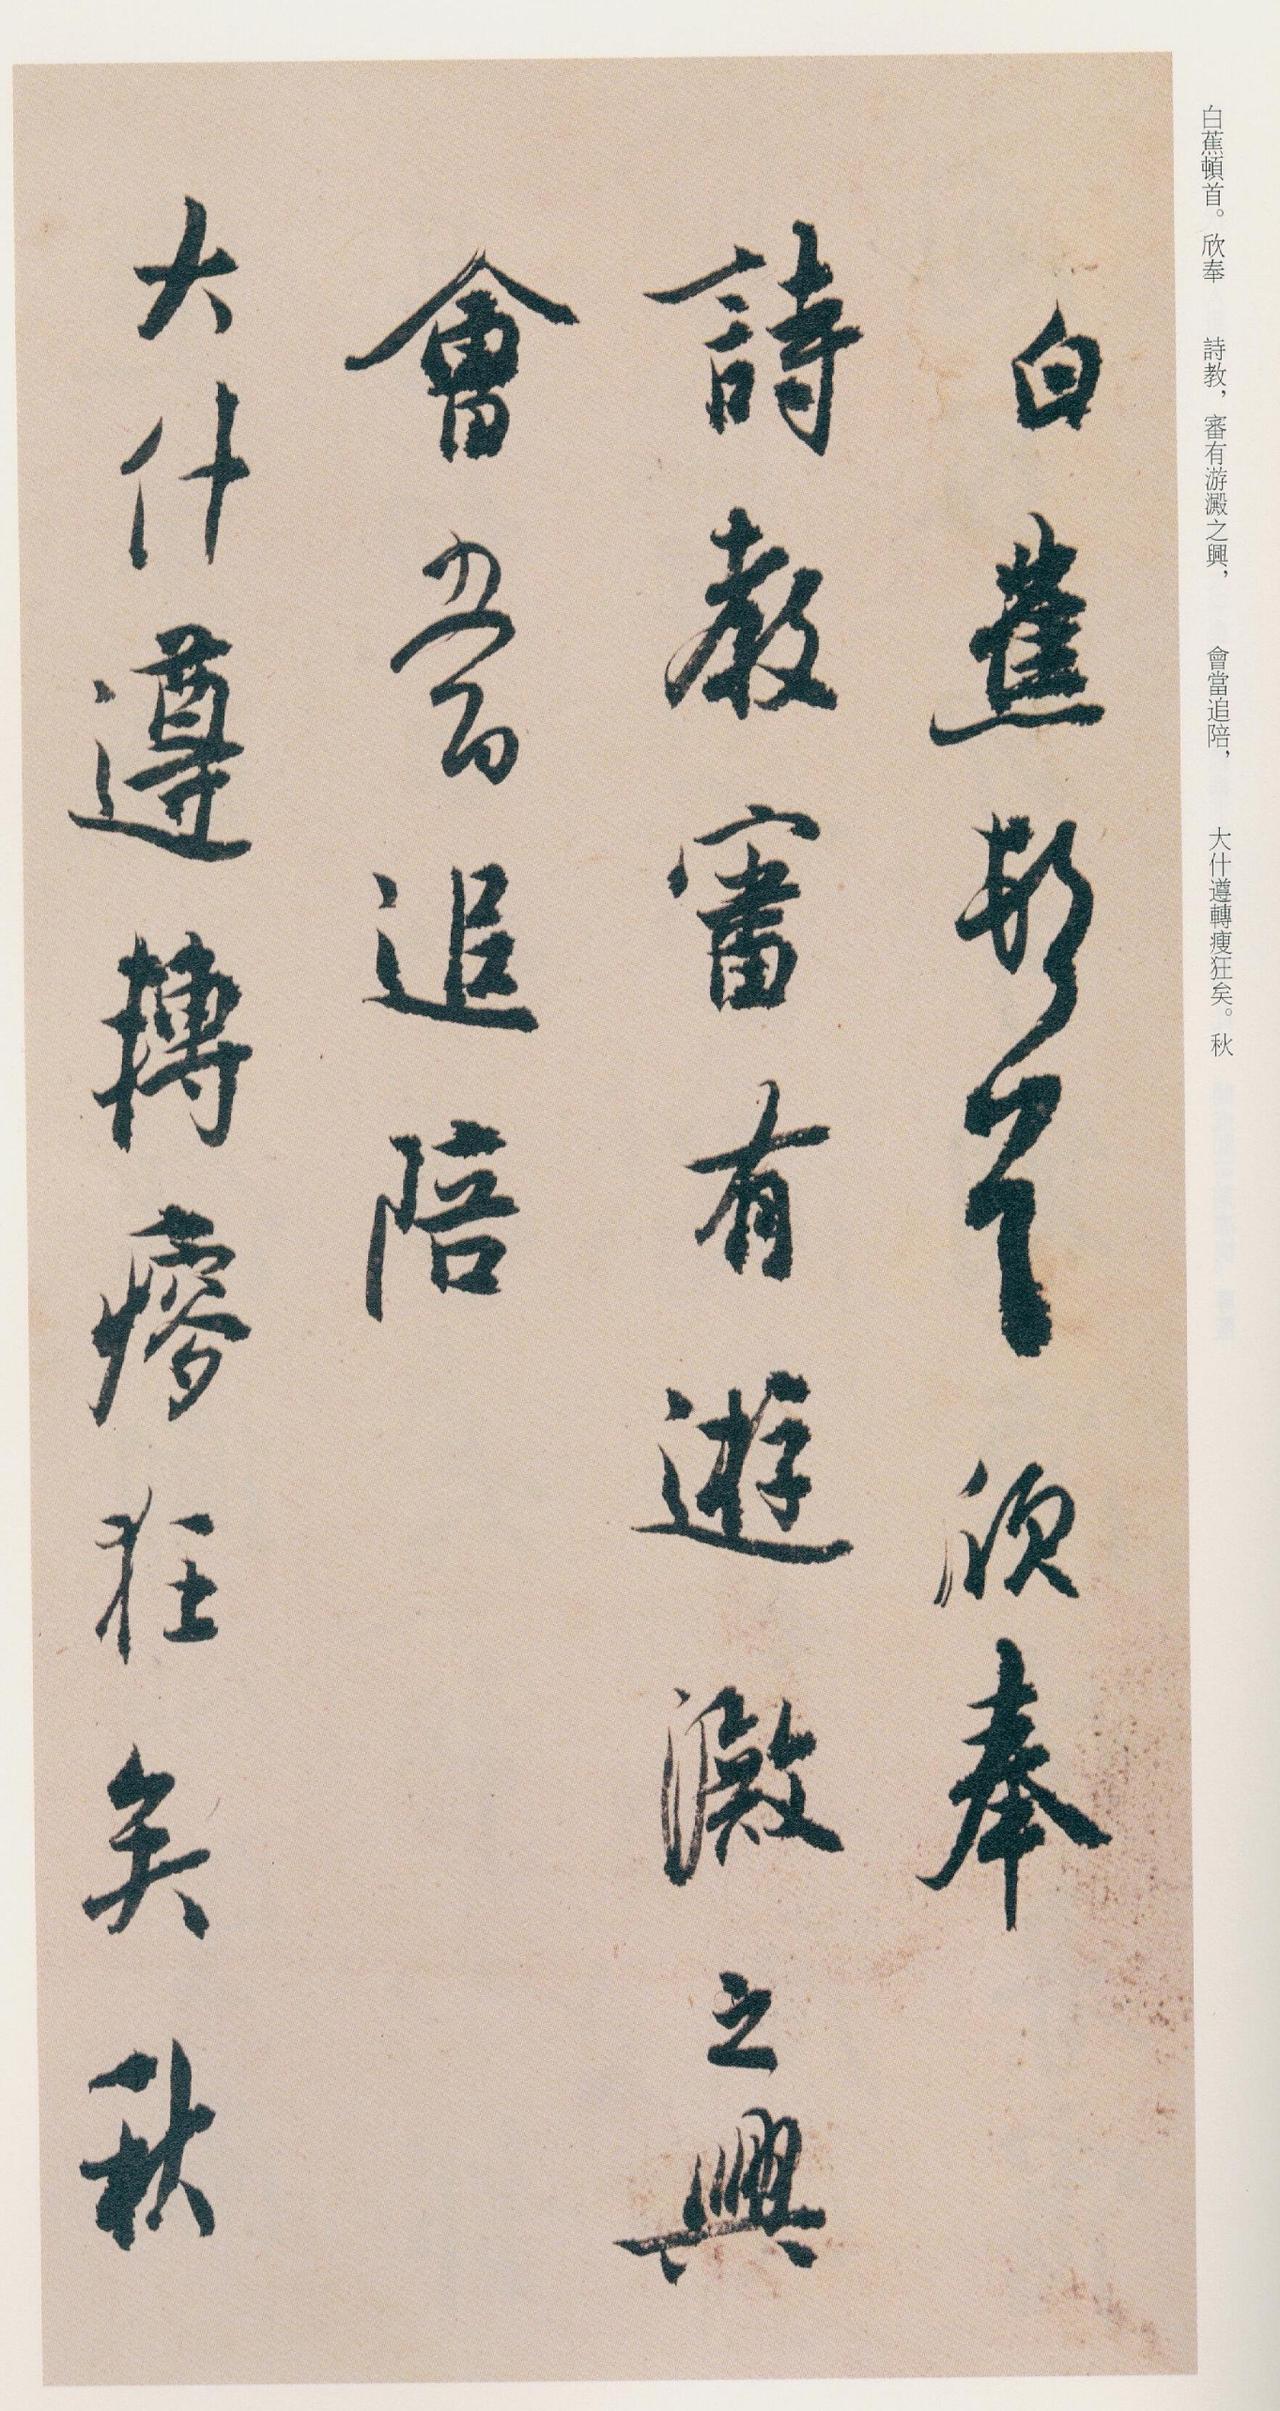 白蕉頓首。欣奉　詩教，審有游澱之興，　會當追陪，　大什遵轉瘦狂矣。秋
白蕉頓首欣奉
詩教審有遊澱之興
會當追陪
大什遵轉瘦狂矣秋